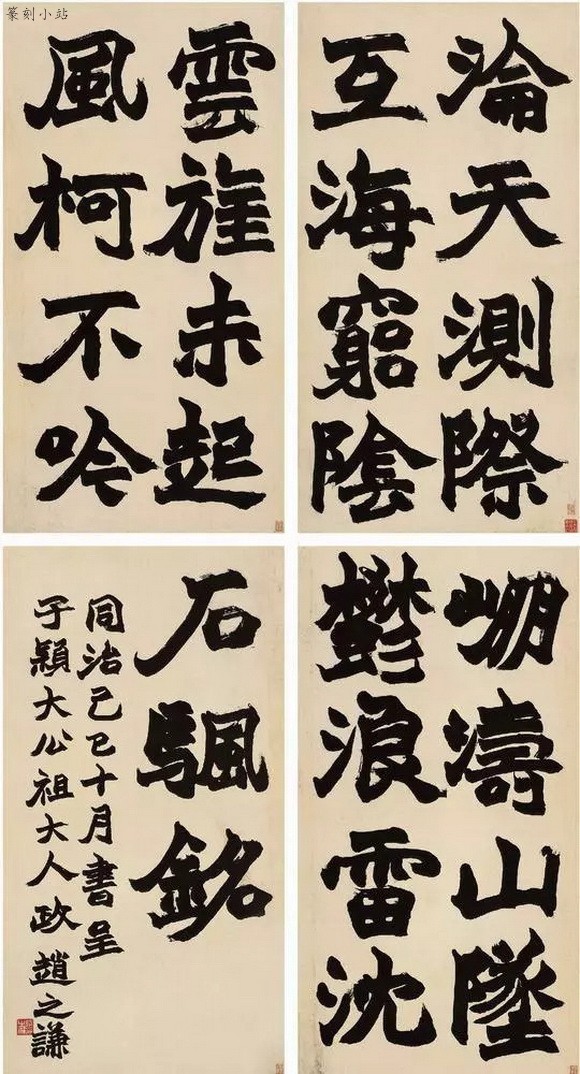 篆刻小站
淪天測際
互海窮陰
雲旌未起
風柯不吟
崩濤山墜
鬱浪雷沈
石颿銘
同治己巳十月書呈
子穎大公祖大人政 趙之謙